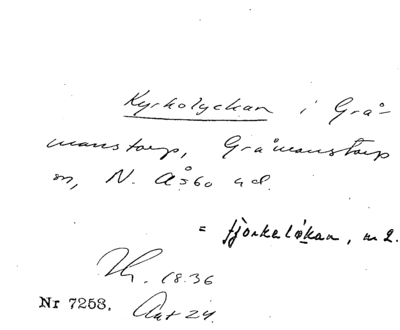 Kyrkolyckan i Grå-
manstorp, Gråmanstorp
sn, N. Åsbo hd.
= fjörkelökan, m2.
Th. 1836
Nr 7258. Akt 24.